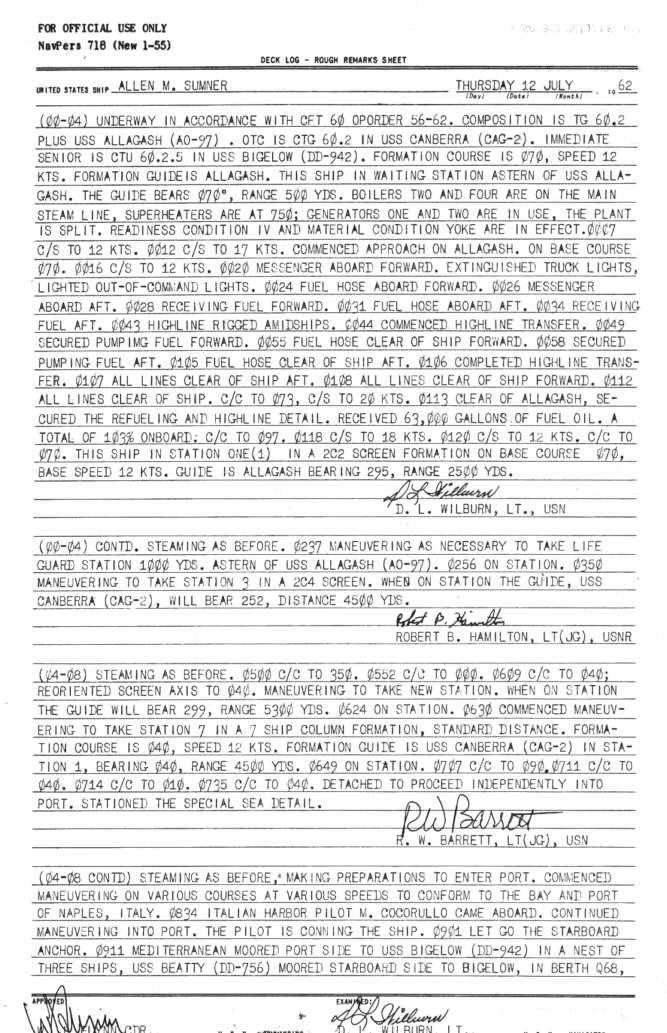 FOR OFFICIAL USE ONLY
NavPers 718 (New 1-55)
DECK LOG - ROUGH REMARKS SHEET
UNITED STATES SHIP ALLEN M. SUMNER THURSDAY 12 JULY , 19 62
(Day) (Date) (Month)
(ØØ-Ø4) UNDERWAY IN ACCORDANCE WITH CFT 6Ø OPORDER 56-62. COMPOSITION IS TG 6Ø.2
PLUS USS ALLAGASH (AO-97) . OTC IS CTG 6Ø.2 IN USS CANBERRA (CAG-2). IMMEDIATE
SENIOR IS CTU 6Ø.2.5 IN USS BIGELOW (DD-942). FORMATION COURSE IS Ø7Ø, SPEED 12
KTS. FORMATION GUIDEIS ALLAGASH. THIS SHIP IN WAITING STATION ASTERN OF USS ALLA-
GASH. THE GUIDE BEARS Ø7Ø°, RANGE 5ØØ YDS. BOILERS TWO AND FOUR ARE ON THE MAIN
STEAM LINE, SUPERHEATERS ARE AT 75Ø; GENERATORS ONE AND TWO ARE IN USE, THE PLANT
IS SPLIT. READINESS CONDITION IV AND MATERIAL CONDITION YOKE ARE IN EFFECT.ØØØ7
C/S TO 12 KTS. ØØ12 C/S TO 17 KTS. COMMENCED APPROACH ON ALLAGASH. ON BASE COURSE
Ø7Ø. ØØ16 C/S TO 12 KTS. ØØ2Ø MESSENGER ABOARD FORWARD. EXTINGUISHED TRUCK LIGHTS,
LIGHTED OUT-OF-COMMAND LIGHTS. ØØ24 FUEL HOSE ABOARD FORWARD. ØØ26 MESSENGER
ABOARD AFT. ØØ28 RECEIVING FUEL FORWARD. ØØ31 FUEL HOSE ABOARD AFT. ØØ34 RECEIVING
FUEL AFT. ØØ43 HIGHLINE RIGGED AMIDSHIPS. ØØ44 COMMENCED HIGHLINE TRANSFER. ØØ49
SECURED PUMPIMG FUEL FORWARD. ØØ55 FUEL HOSE CLEAR OF SHIP FORWARD. ØØ58 SECURED
PUMPING FUEL AFT. Ø1Ø5 FUEL HOSE CLEAR OF SHIP AFT. Ø1Ø6 COMPLETED HIGHLINE TRANS-
FER. Ø1Ø7 ALL LINES CLEAR OF SHIP AFT. Ø1Ø8 ALL LINES CLEAR OF SHIP FORWARD. Ø112
ALL LINES CLEAR OF SHIP. C/C TO Ø73, C/S TO 2Ø KTS. Ø113 CLEAR OF ALLAGASH, SE-
CURED THE REFUELING AND HIGHLINE DETAIL. RECEIVED 63,ØØØ GALLONS OF FUEL OIL. A
TOTAL OF 1Ø3% ONBOARD; C/C TO Ø97. Ø118 C/S TO 18 KTS. Ø12Ø C/S TO 12 KTS. C/C TO
Ø7Ø. THIS SHIP IN STATION ONE(1) IN A 2C2 SCREEN FORMATION ON BASE COURSE Ø7Ø,
BASE SPEED 12 KTS. GUIDE IS ALLAGASH BEARING 295, RANGE 25ØØ YDS.
D L Wilburn
D. L. WILBURN, LT., USN
(ØØ-Ø4) CONTD. STEAMING AS BEFORE. Ø237 MANEUVERING AS NECESSARY TO TAKE LIFE
GUARD STATION 1ØØØ YDS. ASTERN OF USS ALLAGASH (AO-97). Ø256 ON STATION. Ø35Ø
MANEUVERING TO TAKE STATION 3 IN A 2C4 SCREEN. WHEN ON STATION THE GUIDE, USS
CANBERRA (CAG-2), WILL BEAR 252, DISTANCE 45ØØ YDS.
Robert B. Hamilton
ROBERT B. HAMILTON, LT(JG), USNR
(Ø4-Ø8) STEAMING AS BEFORE. Ø5ØØ C/C TO 35Ø. Ø552 C/C TO ØØØ. Ø6Ø9 C/C TO Ø4Ø;
REORIENTED SCREEN AXIS TO Ø4Ø. MANEUVERING TO TAKE NEW STATION. WHEN ON STATION
THE GUIDE WILL BEAR 299, RANGE 53ØØ YDS. Ø624 ON STATION. Ø63Ø COMMENCED MANEUV-
ERING TO TAKE STATION 7 IN A 7 SHIP COLUMN FORMATION, STANDARD DISTANCE. FORMA-
TION COURSE IS Ø4Ø, SPEED 12 KTS. FORMATION GUIDE IS USS CANBERRA (CAG-2) IN STA-
TION 1, BEARING Ø4Ø, RANGE 45ØØ YDS. Ø649 ON STATION. Ø7Ø7 C/C TO Ø9Ø.Ø711 C/C TO
Ø4Ø. Ø714 C/C TO Ø1Ø. Ø735 C/C TO Ø4Ø. DETACHED TO PROCEED INDEPENDENTLY INTO
PORT. STATIONED THE SPECIAL SEA DETAIL.
RW Barrett
R. W. BARRETT, LT(JG), USN
(Ø4-Ø8 CONTD) STEAMING AS BEFORE, MAKING PREPARATIONS TO ENTER PORT. COMMENCED
MANEUVERING ON VARIOUS COURSES AT VARIOUS SPEEDS TO CONFORM TO THE BAY AND PORT
OF NAPLES, ITALY. Ø834 ITALIAN HARBOR PILOT M. COCORULLO CAME ABOARD. CONTINUED
MANEUVERING INTO PORT. THE PILOT IS CONNING THE SHIP. Ø9Ø1 LET GO THE STARBOARD
ANCHOR. Ø911 MEDITERRANEAN MOORED PORT SIDE TO USS BIGELOW (DD-942) IN A NEST OF
THREE SHIPS, USS BEATTY (DD-756) MOORED STARBOARD SIDE TO BIGELOW, IN BERTH Q68,
APPROVED EXAMINED:
D L Wilburn
CDR. D. L. WILBURN, LT.